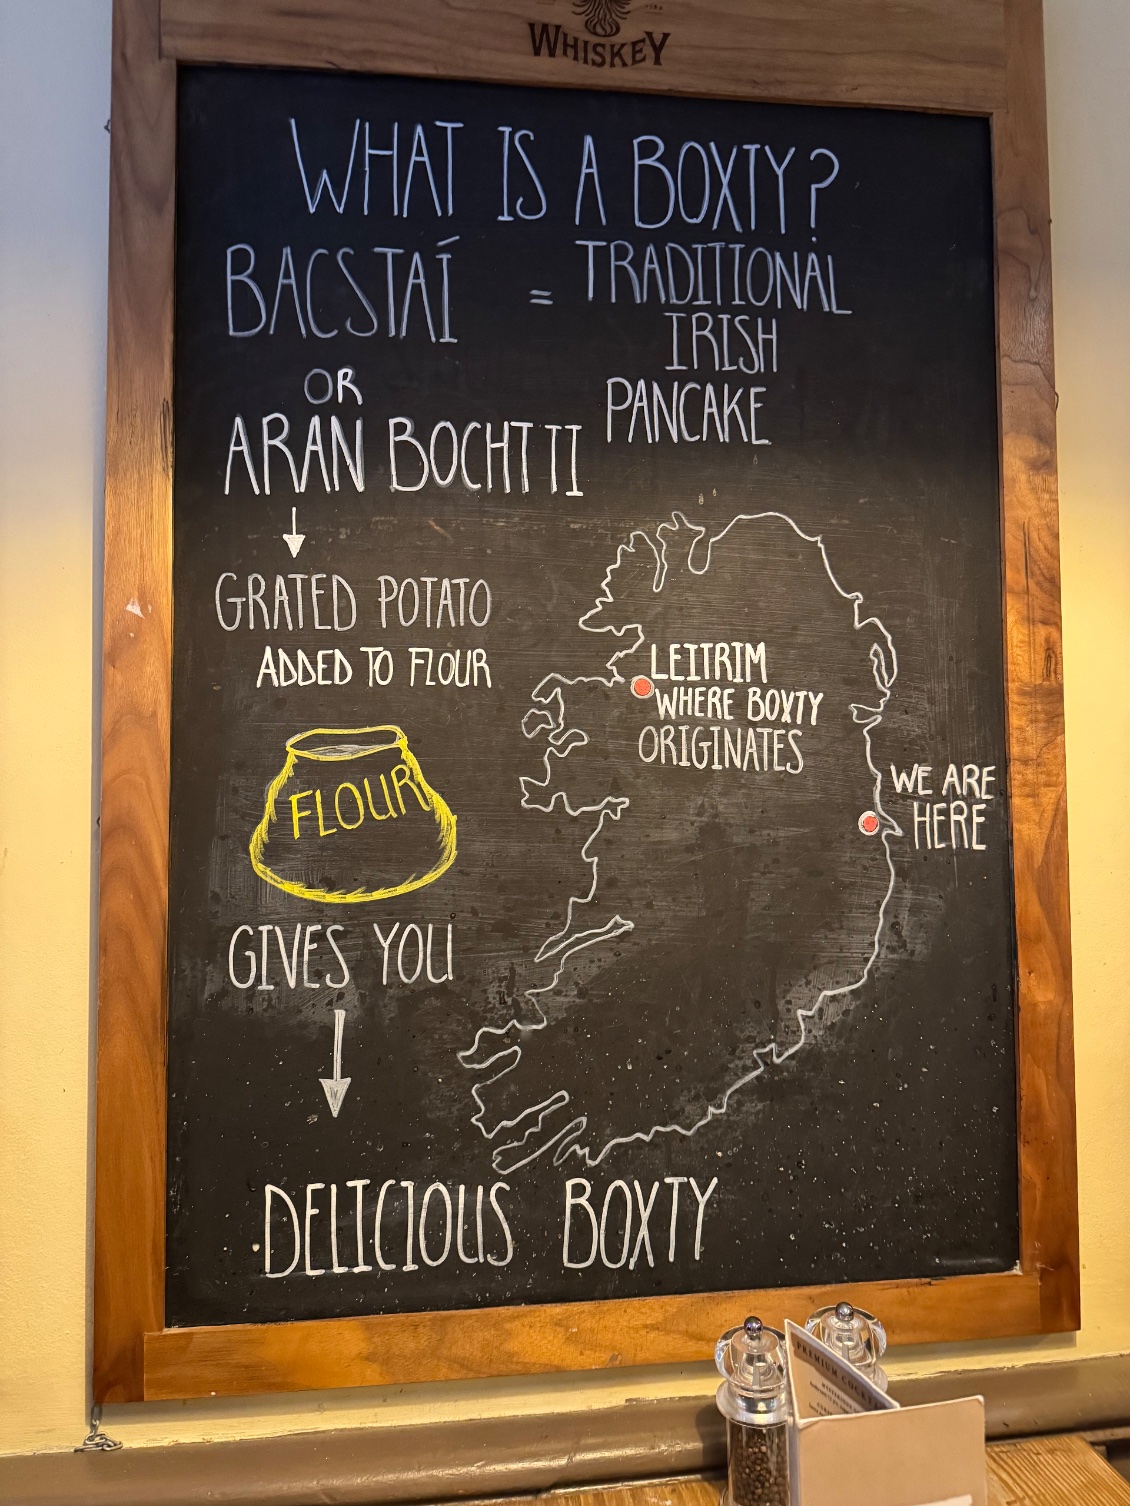 WHISKEY
WHAT IS A BOXTY?
BACSTAÍ = TRADITIONAL
IRISH
PANCAKE
OR
ARAN BOCHTTI
GRATED POTATO
ADDED TO FLOUR
FLOUR
GIVES YOU
DELICIOUS BOXTY
LEITRIM
WHERE BOXTY
ORIGINATES
WE ARE
HERE
PREMIUM